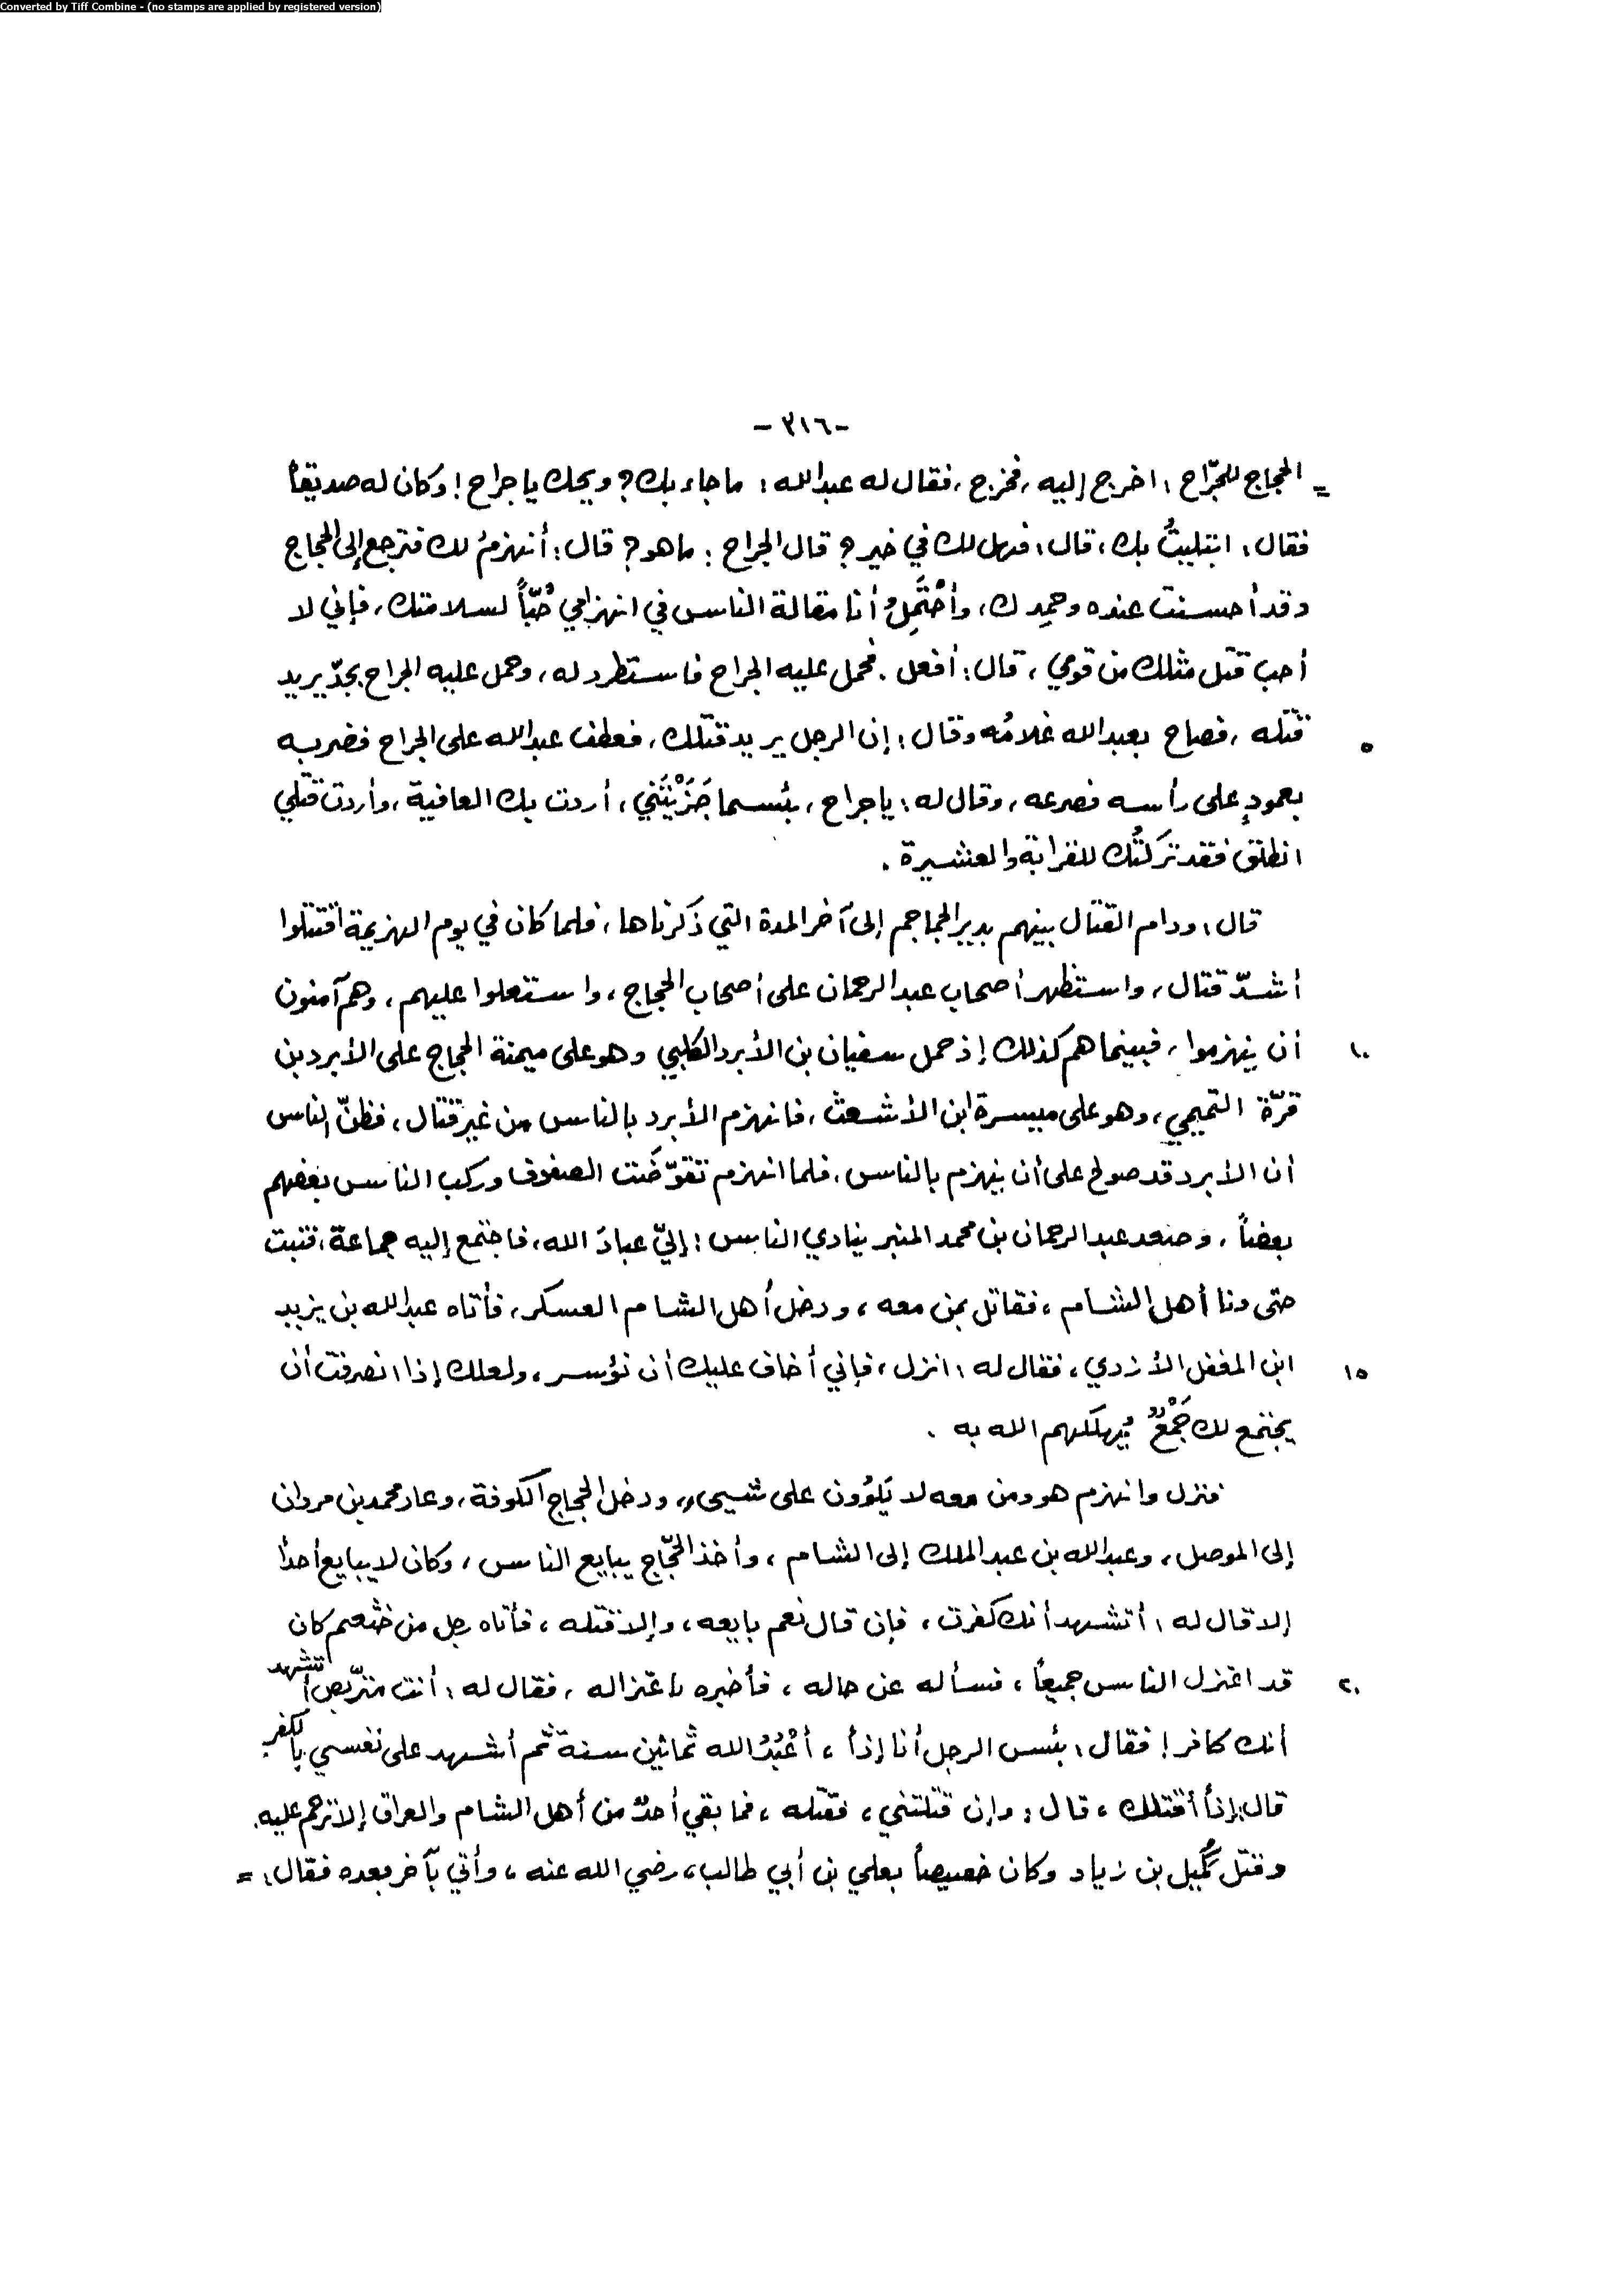 Converted by Tiff Combine - (no stamps are applied by registered version)
-٣١٦-
= الحجاج للجرّاح : اخرج إليه ، فخرج ، فقال له عبد الله : ما جاء بك ؟ ويحك يا جراح ! وكان له صديقاً
فقال : ابتليتُ بك ، قال : فهل لك في خير ؟ قال الجراح : ما هو ؟ قال : أنهزمُ لك فترجع إلى الحجاج
وقد أحسنت عنده وحمِدك ، وأحْتَمِلُ أنا مقالة الناس في انهزامي حُبّاً لسلامتك ، فإني لا
أحب قتل مثلك من قومي ، قال : أفعل . فحمل عليه الجراح فاستطرد له ، وحمل عليه الجراح بجدّ يريد
قتله ، فصاح بعبد الله غلامُه وقال : إن الرجل يريد قتلك ، فعطف عبد الله على الجراح فضربه
٥
بعمودٍ على رأسه فصرعه ، وقال له : يا جراح ، بئسما جَزَيْتَني ، أردت بك العافية ، وأردت قتلي
انطلق فقد تركتُك للقرابة والعشيرة .
قال : ودام القتال بينهم بدير الجماجم إلى آخر المدة التي ذكرناها ، فلما كان في يوم الهزيمة اقتتلوا
أشدّ قتال ، واستظهر أصحاب عبد الرحمان على أصحاب الحجاج ، واستعلوا عليهم ، وهم آمنون
أن ينهزموا ، فبينما هم كذلك إذ حمل سفيان بن الأبرد الكلبي وهو على ميمنة الحجاج على الأبرد بن
١٠
قرّة التميمي ، وهو على ميسرة ابن الأشعث ، فانهزم الأبرد بالناس من غير قتال ، فظنّ الناس
أن الأبرد قد صولح على أن ينهزم بالناس ، فلما انهزم تقوّضت الصفوف وركب الناس بعضهم
بعضاً ، وصعد عبد الرحمان بن محمد المنبر ينادي الناس : إليّ عبادَ الله ، فاجتمع إليه جماعة ، فثبت
حتى دنا أهل الشام ، فقاتل بمن معه ، ودخل أهل الشام العسكر ، فأتاه عبد الله بن يزيد
ابن المغفل الأزدي ، فقال له : انزل ، فإني أخاف عليك أن تؤسر ، ولعلك إذا انصرفت أن
١٥
يجتمع لك جَمْعٌ يُهلكهم الله به .
فنزل وانهزم هو ومن معه لا يَلْوُون على شيء ، ودخل الحجاج الكوفة ، وعاد محمد بن مروان
إلى الموصل ، وعبد الله بن عبد الملك إلى الشام ، وأخذ الحجّاج يبايع الناس ، وكان لا يبايع أحداً
إلا قال له : أتشهد أنك كفرت ، فإن قال نعم بايعه ، وإلا قتله ، فأتاه رجل من خثعم كان
قد اعتزل الناس جميعاً ، فسأله عن حاله ، فأخبره باعتزاله ، فقال له : أنت متربّص أتشهد
٢٠
أنك كافر ! فقال : بئس الرجل أنا إذاً ، أعْبُدُ الله ثمانين سنة ثم أشهد على نفسي بالكفر
قال : إذاً أقتلك ، قال : وإن قتلتني ، فقتله ، فما بقي أحدٌ من أهل الشام والعراق إلا ترحم عليه .
وقتل كُمَيل بن زياد وكان خصيصاً بعلي بن أبي طالب ، رضي الله عنه ، وأتي بآخر بعده فقال : =